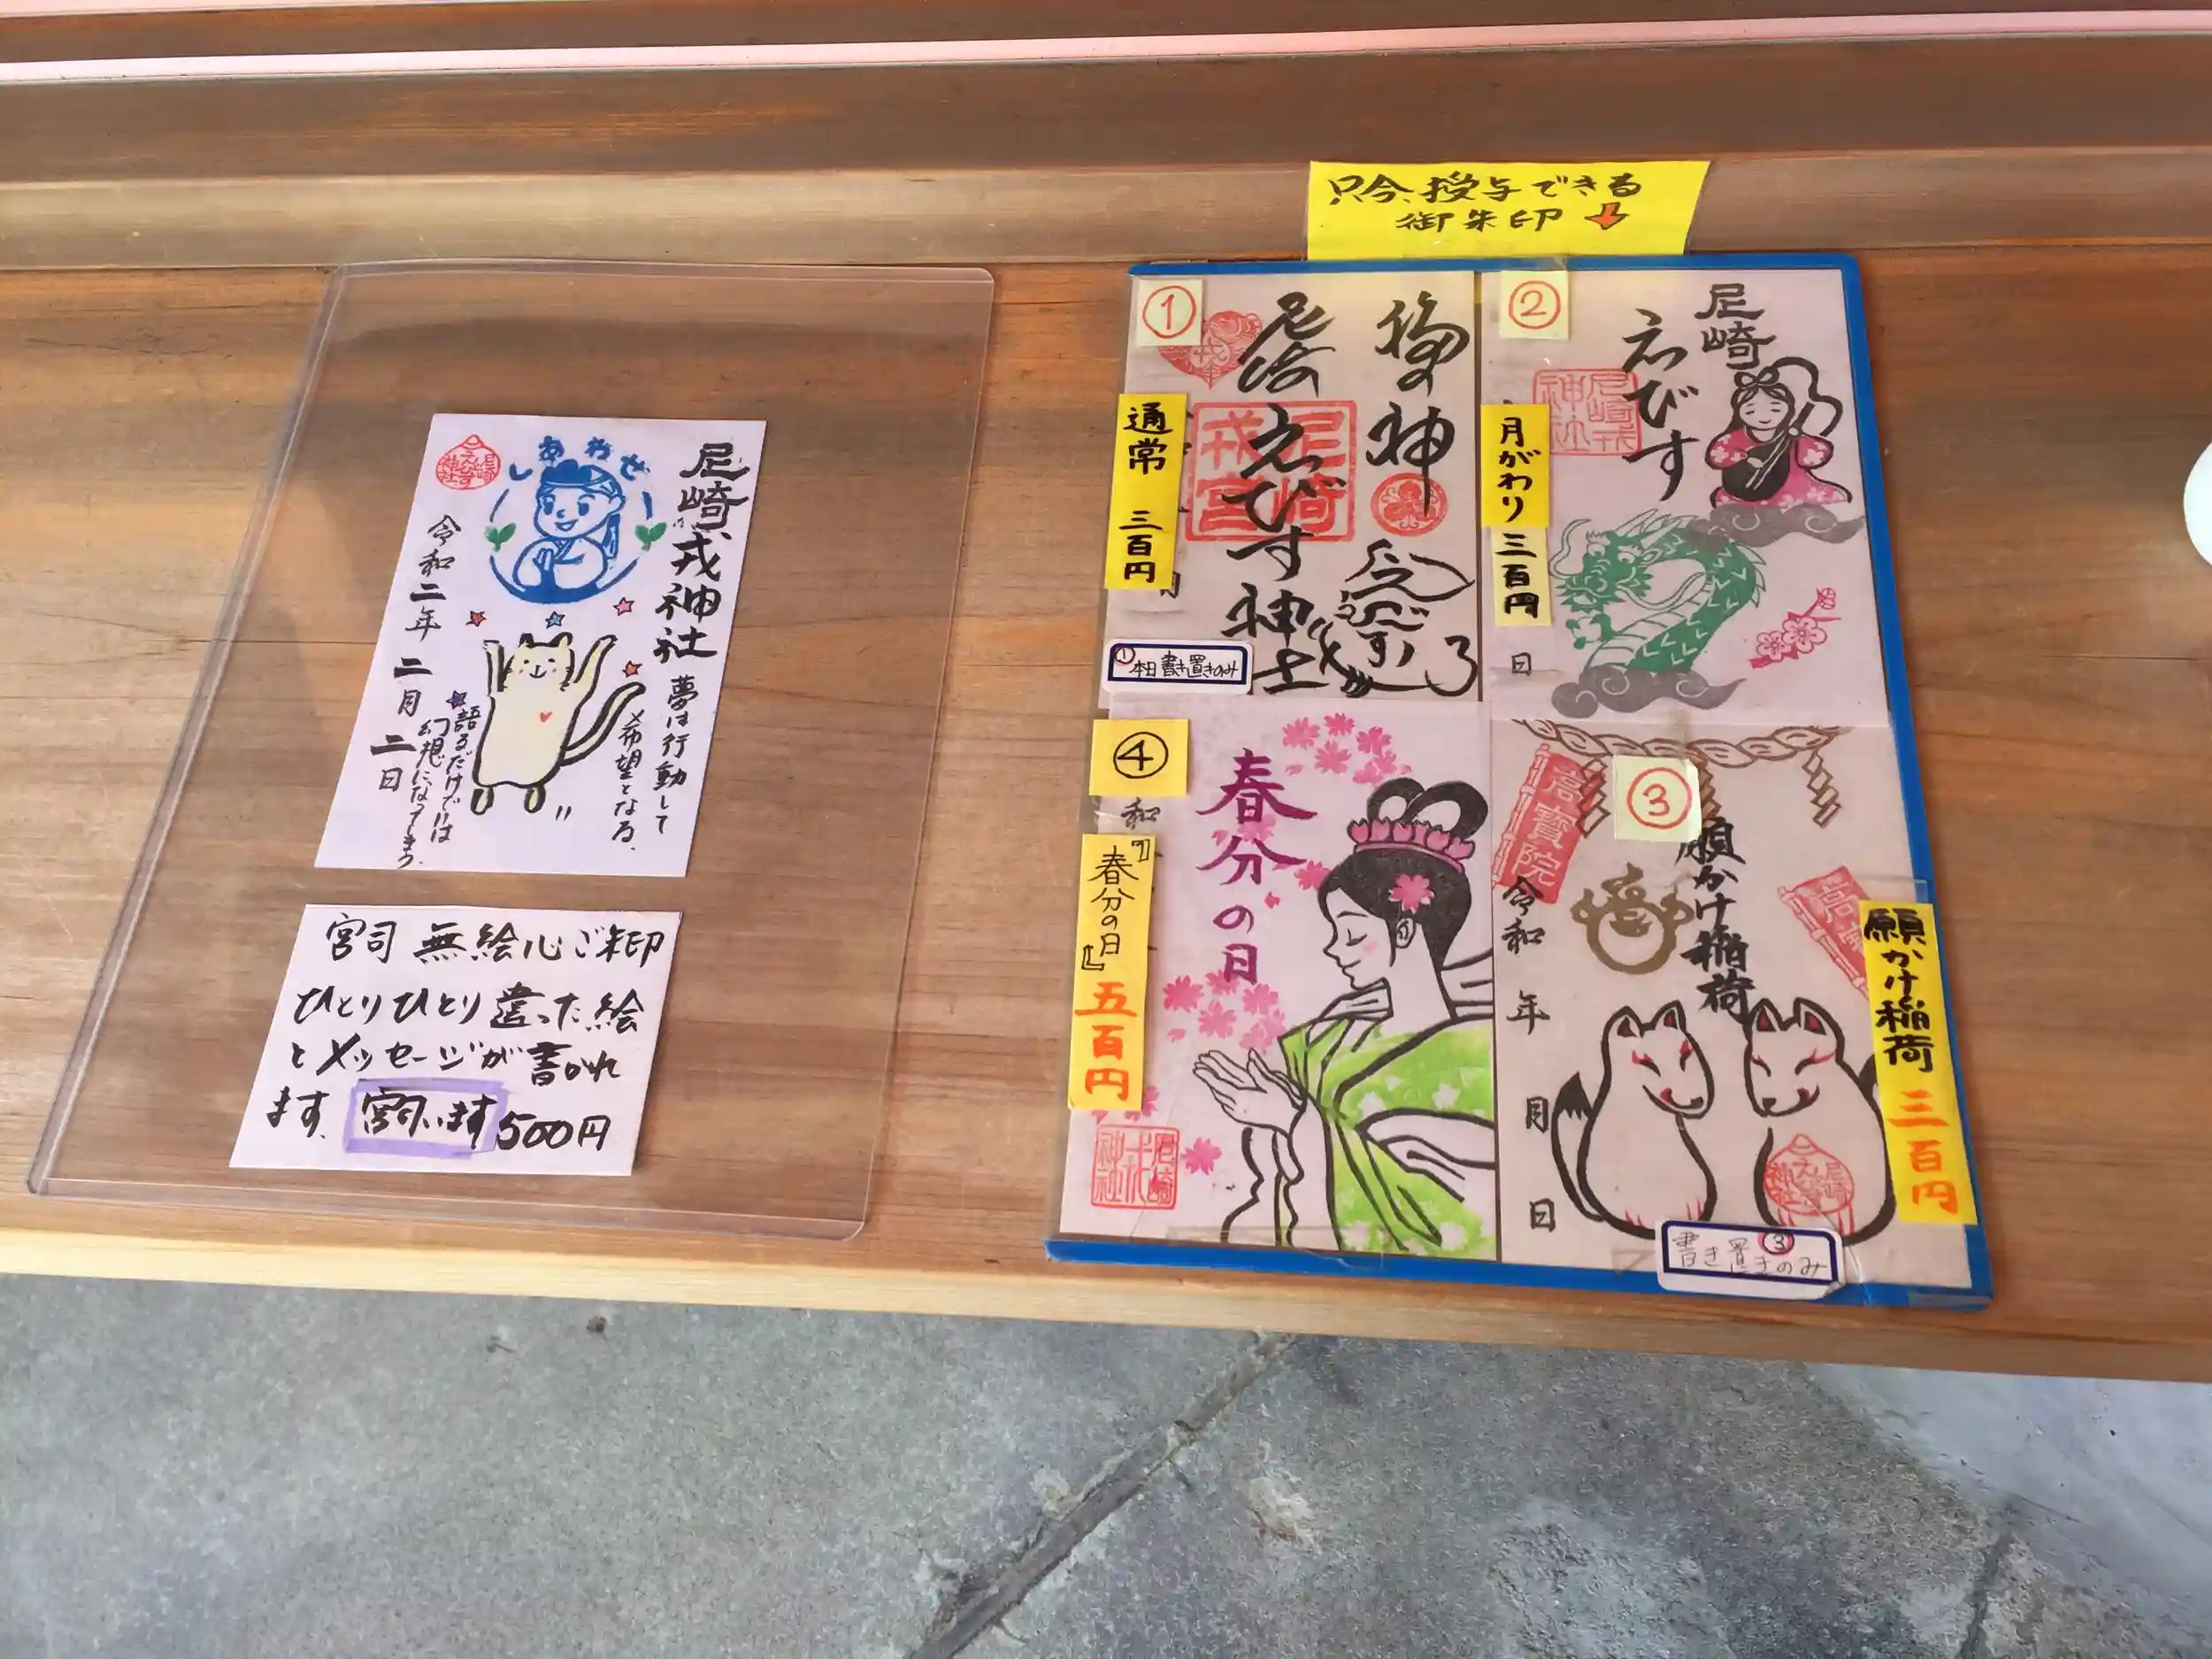 尼崎戎神社
しあわせ
夢は行動して
希望となる、
語るだけでは
幻想になってしまう、
令和二年 二月 二日
宮司 無絵心ご朱印
ひとりひとり違った絵
とメッセージが書かれ
ます、宮司います 500円
只今、授与できる
御朱印
①
福の神
尼崎えびす神社
尼崎戎宮
通常 三百円
① 本日書き置きのみ
②
尼崎
えびす
尼崎戎神社
月がわり 三百円
日
④
春分の日
和
『春分の日』 五百円
尼崎戎神社
③
願かけ稲荷
高寳院
令和 年 月 日
願かけ稲荷 三百円
③
書き置きのみ